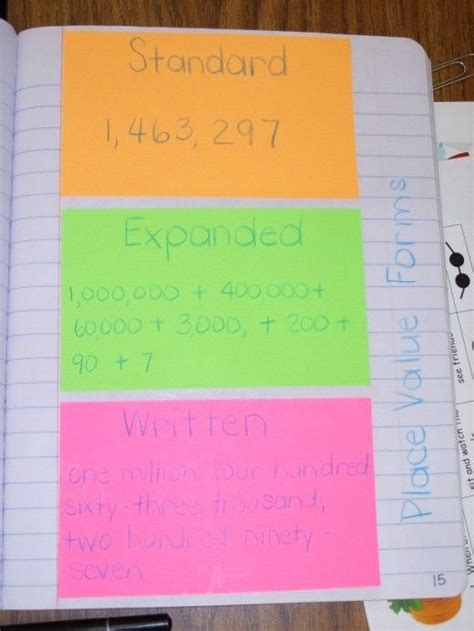 Standard
1,463,297
Expanded
1,000,000 + 400,000+
60,000 + 3,000, + 200 +
90 + 7
Written
one million four hundred
sixty-three thousand,
two hundred ninety-
seven
Place Value Forms
15
see friends
fit and watch the
When